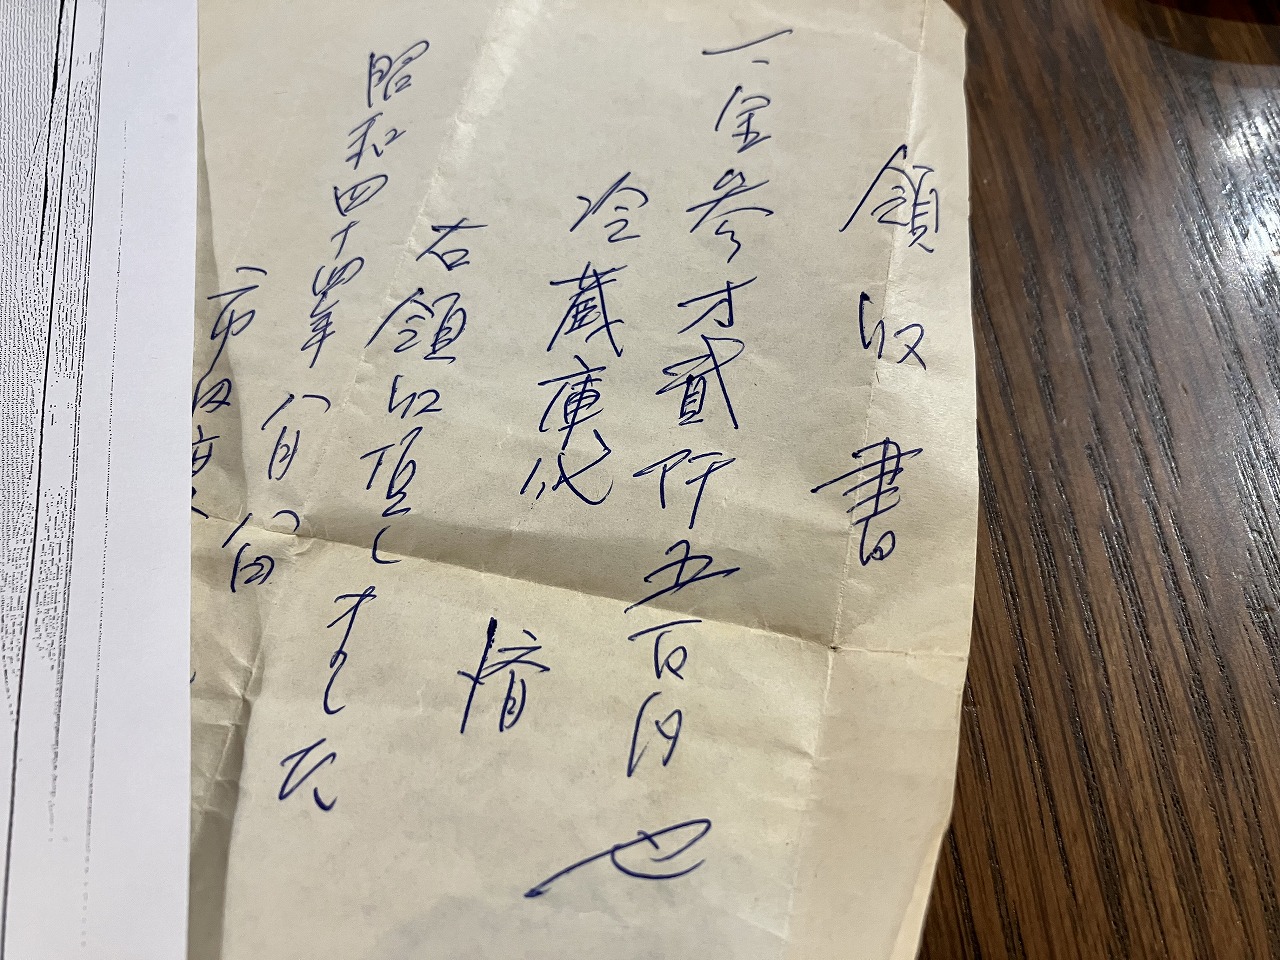 領収書
一、金参万貮仟五百円也
冷蔵庫代
右領収頂しました
昭和四十四年八月八日
市